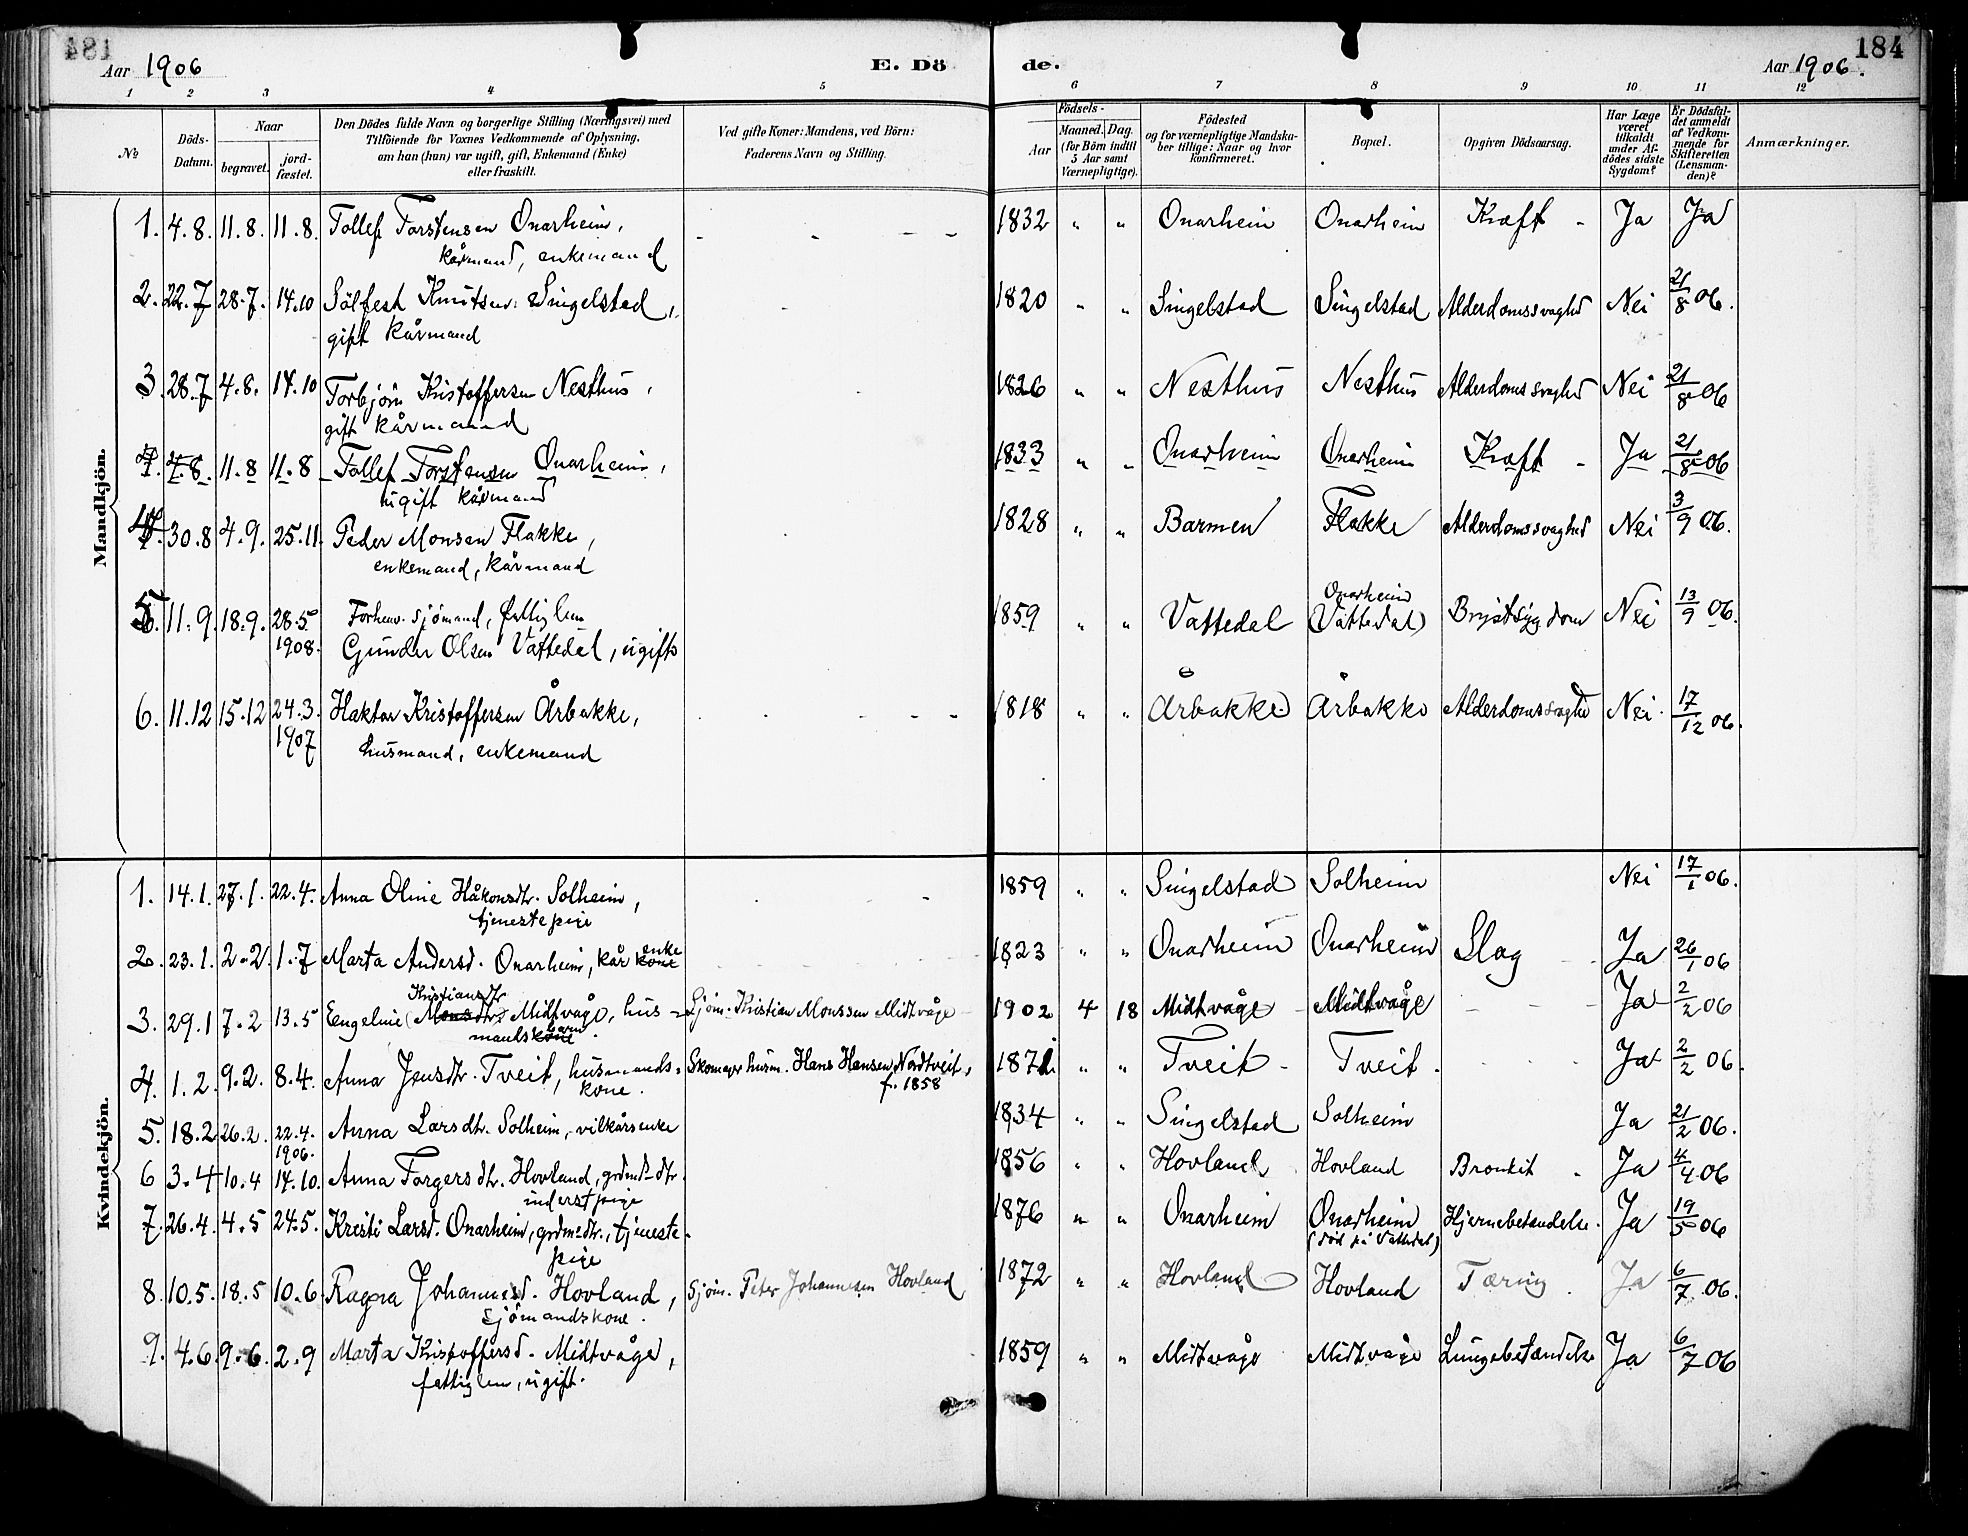 184
Aar 1906
E. Dö
de.
Aar 1906.
184
1 2 3 4 5 6 7 8 9 10 11 12
No
Döds-Datum.
Naar
begravet.
jord-fæstet.
Den Dödes fulde Navn og borgerlige Stilling (Næringsvei) med
Tilföiende for Voxnes Vedkommende af Oplysning,
om han (hun) var ugift, gift, Enkemand (Enke)
eller fraskilt.
Ved gifte Koner: Mandens, ved Börn:
Faderens Navn og Stilling.
Födsels-
Aar
Maaned. Dag.
(for Börn indtil
5 Aar samt
Værnepligtige).
Födested
og for værnepligtige Mandska-
ber tillige: Naar og hvor
konfirmeret.
Bopæl.
Opgiven Dödsaarsag.
Har Læge
været
tilkaldt
under Af-
dödes sidste
Sygdom?
Er Dödsfal-
det anmeldt
af Vedkom-
mende for
Skifteretten
(Lensman-
den)?
Anmærkninger.
Mandkjön.
1. 4.8. 11.8. 11.8. Tollef Torstensen Onarheim, - - - - 1832 " " Onarheim Onarheim Kræft - Ja Ja
kårmand, enkemand
2. 22.7 28.7. 14.10 Sölfest Knutsen Singelstad, 1820 " " Singelstad Singelstad Alderdomssvaghed Nei 21/8 06.
gift kårmand
3. 28.7 4.8. 14.10 Torbjörn Kristoffersen Nesthus, 1826 " " Nesthus Nesthus Alderdomssvaghed Nei 21/8 06
gift kårmand
4. 4.8. 11.8 11.8 Tollef Torstensen Onarheim, 1833 " " Onarheim Onarheim Kræft - Ja 21/8 06
ugift kårmand
4. 30.8 4.9. 25.11. Peder Monsen Flakke, 1828 " " Barmen Flakke Alderdomssvaghed Nei 3/9 06.
enkemand, kårmand
5. 11.9. 18.9. 28.5 1908. Forhenv. sjömand, fattiglem
Gunder Olsen Vattedal, ugift 1859 " " Vattedal Onarheim (Vattedal) Brystsygdom Nei 13/9 06.
6. 11.12 15.12 24.3. 1907 Haktor Kristoffersen Årbakke, 1818 " " Årbakke Årbakke Alderdomssvaghed Nei. 17/12 06.
husmand, enkemand
Kvindekjön.
1. 14.1. 27.1. 22.4. Anna Oline Håkonsdtr. Solheim, 1859 " " Singelstad Solheim Nei 17/1 06.
tjenestepige
2. 23.1. 2.2. 1.7 Marta Andersd. Onarheim, kår kone enke 1823 " " Onarheim Onarheim Slag Ja 26/1 06
3. 29.1 7.2 13.5 Engeline (Monsdtr.) Kristiansdtr Midtvåge, hus= Sjöm. Kristian Monssen Midtvåge 1902 4 18 Midtvåge Midtvåge Ja 2/2 06
mands kone barn.
4. 1.2. 9.2. 8.4. Anna Jensdtr. Tveit, husmands= Skomager husm. Hans Hansen Nordtveit, 1871. " " Tveit - Tveit. Ja 2/2 06.
kone. f. 1858
5. 18.2 26.2. 22.4. 1906. Anna Larsdtr. Solheim, vilkårsenke 1834 " " Singelstad Solheim Ja 21/2 06.
6 3.4 10.4 14.10. Anna Torgersdtr. Hovland, grdmd-dtr. 1856 " " Hovland Hovland Bronkit Ja 4/4 06
inderstpige
7. 26.4. 4.5 24.5. Kristi Larsd. Onarheim, grdmdtr., tjeneste- 1876 " " Onarheim Onarheim Hjernebetændelse. Ja 19/5 06
pige (död på Vattedal)
8. 10.5. 18.5 10.6. Ragna Johannesd. Hovland, Sjöm. Peter Johannesen Hovland 1872 " " Hovland Hovland Tæring Ja 6/7 06.
Sjömandskone.
9. 4.6. 9.6. 2.9 Marta Kristoffersd. Midtvåge, 1859 " " Midtvåge Midtvåge Lungebetændelse Ja 6/7 06
fattiglem, ugift.